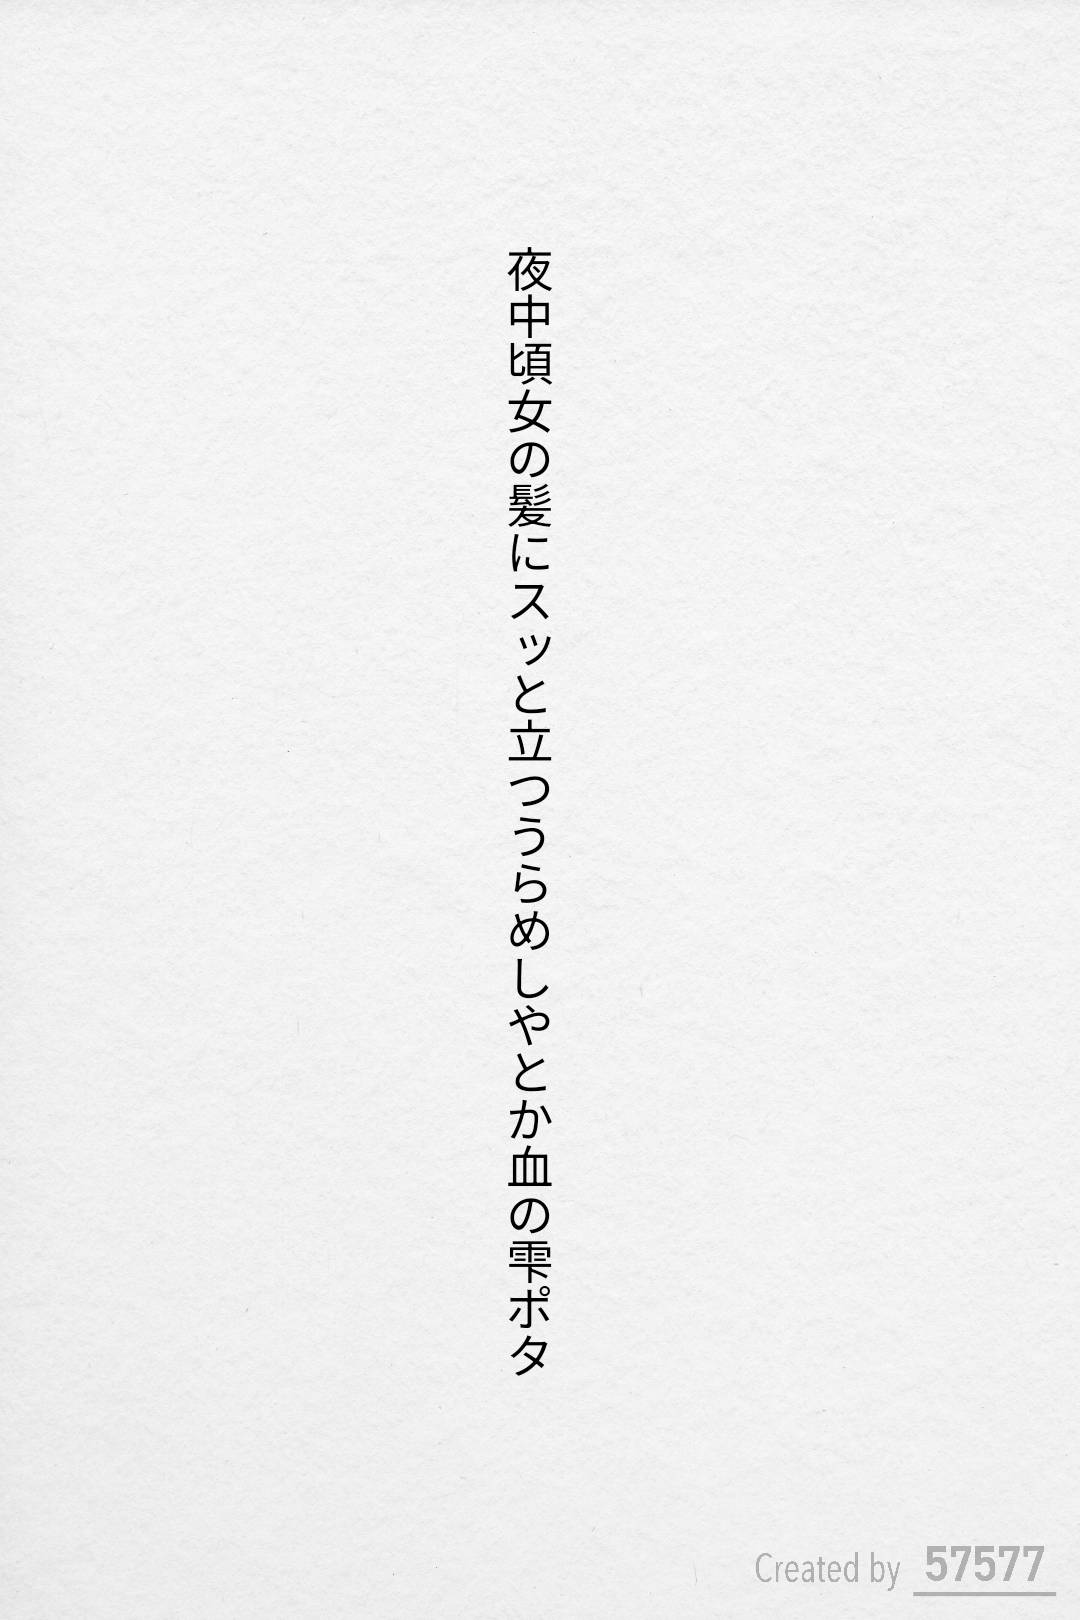 夜中頃女の髪にスッと立つうらめしやとか血の雫ポタ
Created by 57577